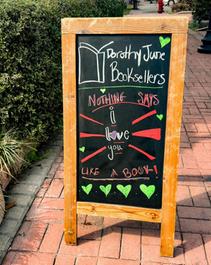 Dorothy June
Booksellers
NOTHING SAYS
i
love
you
LIKE A BOOK!